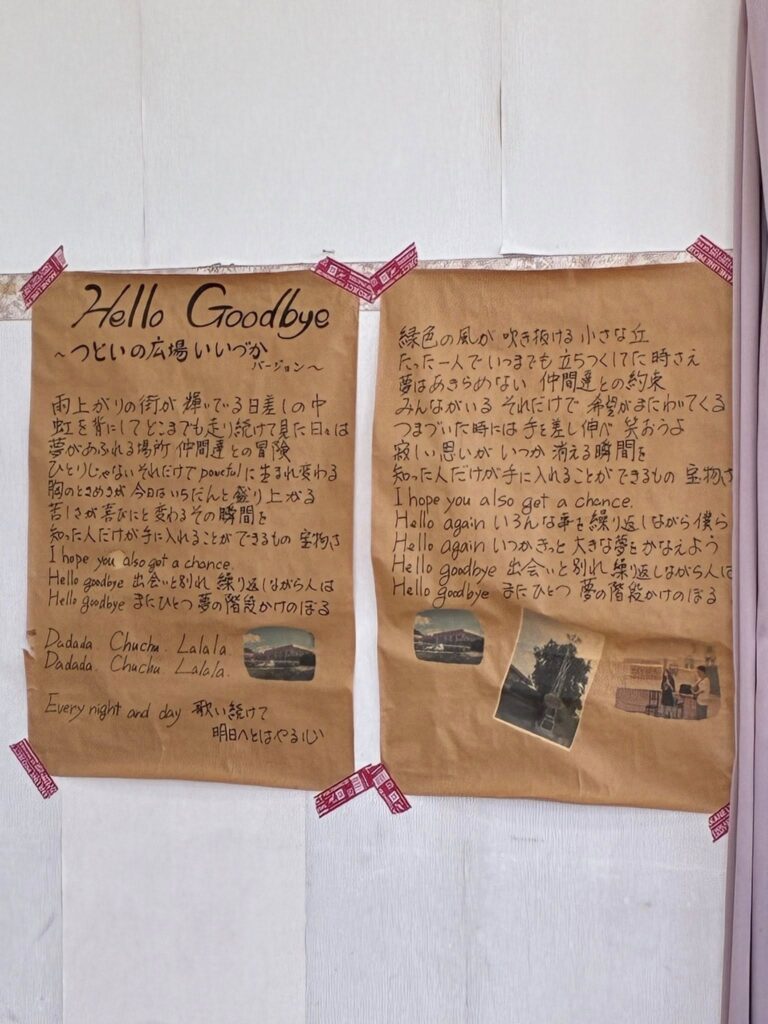 Hello Goodbye
～つどいの広場いいづか
バージョン～
雨上がりの街が 輝いている日差しの中
虹を背にして どこまでも走り続けて見た日々は
夢があふれる場所 仲間達との冒険
ひとりじゃない それだけで powerfulに生まれ変わる
胸のときめきが 今日はいちだんと盛り上がる
苦しさが喜びにと変わるその瞬間を
知った人だけが手に入れることができるもの 宝物さ
I hope you also got a chance.
Hello goodbye 出会いと別れ 繰り返しながら人は
Hello goodbye またひとつ 夢の階段かけのぼる
Dadada. Chuchu. Lalala.
Dadada. Chuchu. Lalala.
Every night and day 歌い続けて
明日へとはやる心
緑色の風が 吹き抜ける 小さな丘
たった一人で いつまでも 立ちつくしてた時さえ
夢はあきらめない 仲間達との約束
みんながいる それだけで 希望がまたわいてくる
つまづいた時には 手を差し伸べ 笑おうよ
寂しい思いが いつか 消える瞬間を
知った人だけが手に入れることが できるもの 宝物さ
I hope you also got a chance.
Hello again いろんな事を繰り返しながら僕ら
Hello again いつかきっと 大きな夢をかなえよう
Hello goodbye 出会いと別れ繰り返しながら人は
Hello goodbye またひとつ 夢の階段かけのぼる